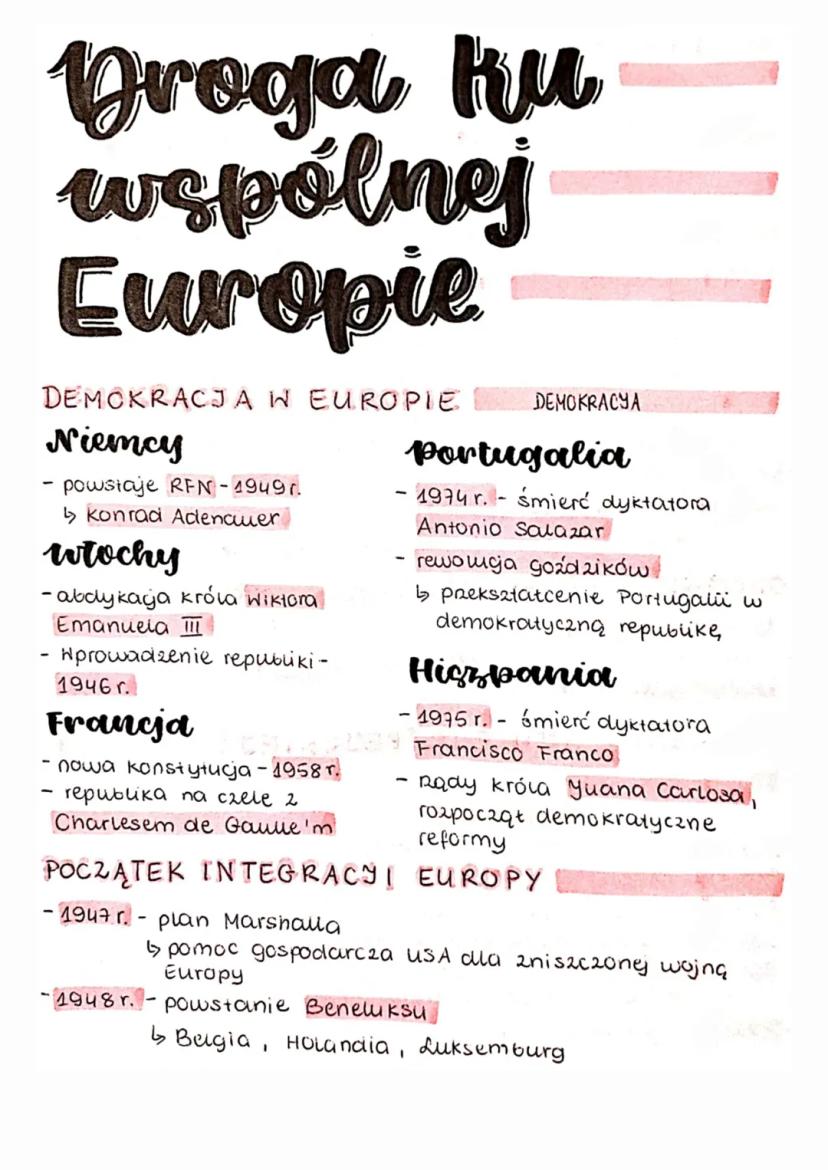 Droga ku
wspólnej
Europie
DEMOKRACJA W EUROPIE DEMOKRACYA
Niemcy
- powstaje RFN - 1949 r.
↳ Konrad Adenauer
Włochy
- abdykacja króla Wiktora
Emanuela III
- Wprowadzenie republiki -
1946 r.
Francja
- nowa konstytucja - 1958 r.
- republika na czele z
Charlesem de Gaulle'm
Portugalia
- 1974 r. - śmierć dyktatora
Antonio Salazar
- rewolucja goździków
↳ przekształcenie Portugalii w
demokratyczną republikę
Hiszpania
- 1975 r. - śmierć dyktatora
Francisco Franco
- rządy króla Juana Carlosa,
rozpoczął demokratyczne
reformy
POCZĄTEK INTEGRACJI EUROPY
- 1947 r. - plan Marshalla
↳ pomoc gospodarcza USA dla zniszczonej wojną
Europy
- 1948 r. - powstanie Beneluksu
↳ Belgia, Holandia, Luksemburg